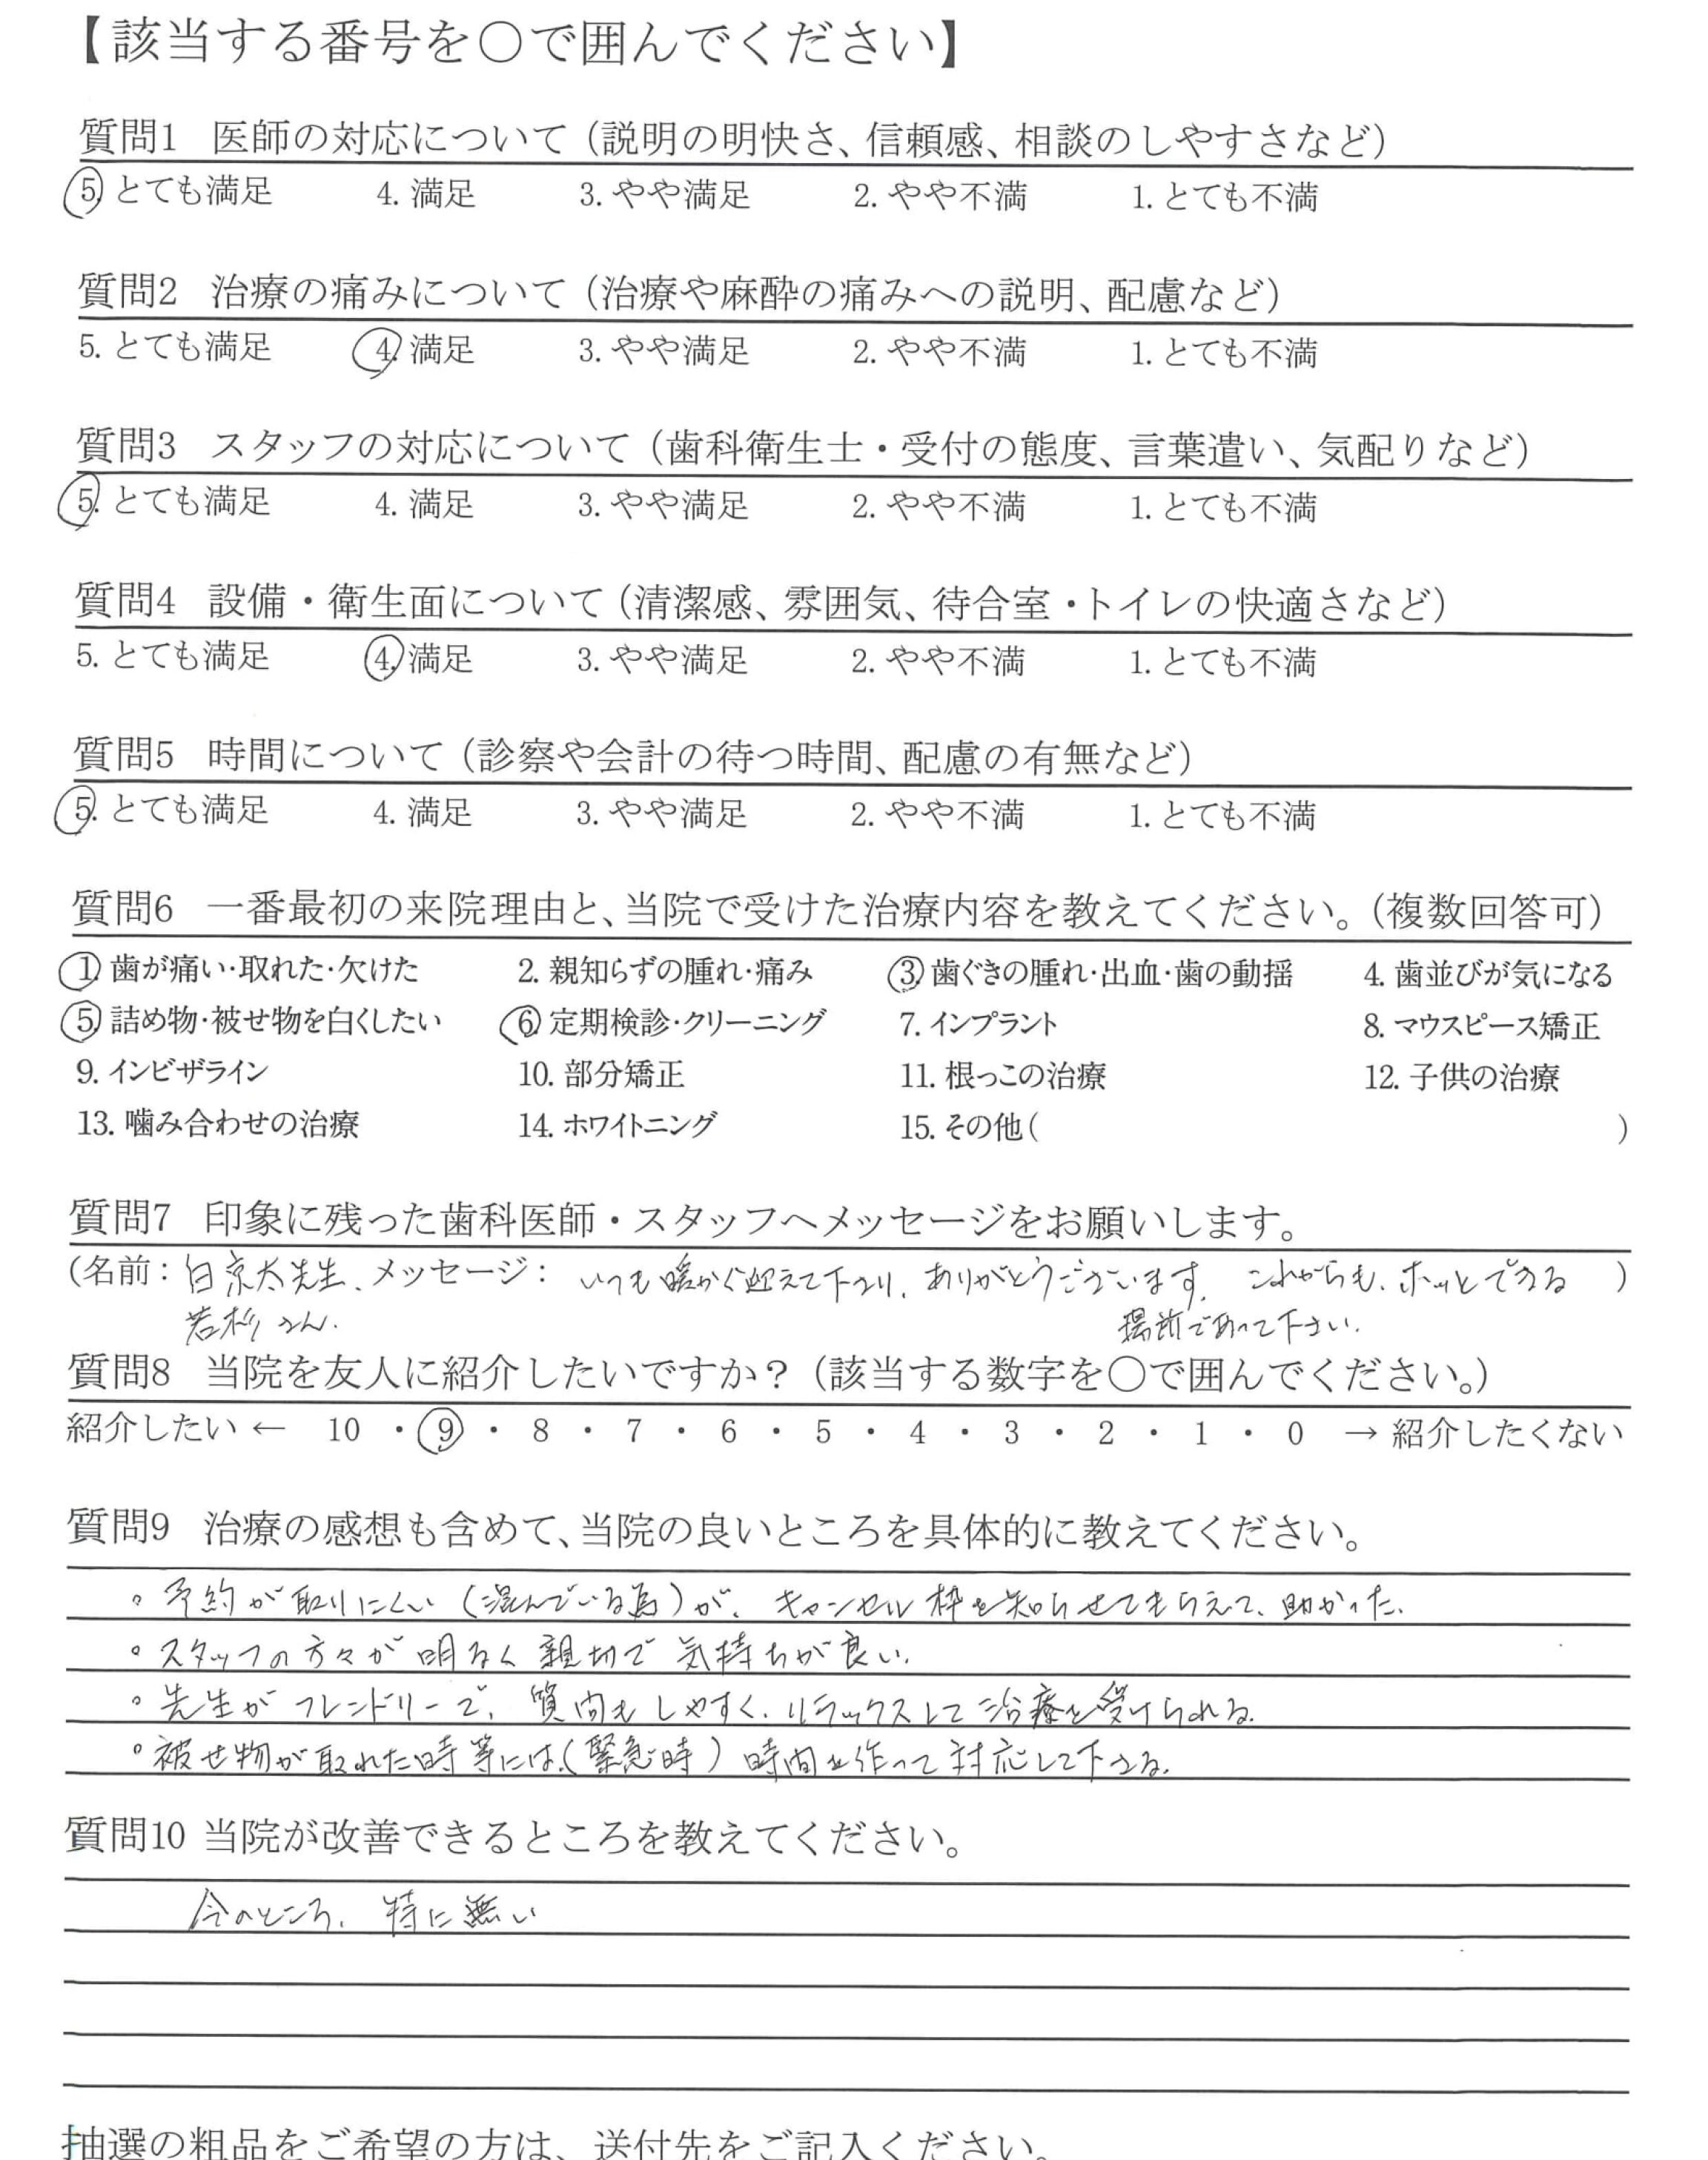 【該当する番号を〇で囲んでください】
質問1 医師の対応について（説明の明快さ、信頼感、相談のしやすさなど）
5. とても満足 4. 満足 3. やや満足 2. やや不満 1. とても不満
質問2 治療の痛みについて（治療や麻酔の痛みへの説明、配慮など）
5. とても満足 4. 満足 3. やや満足 2. やや不満 1. とても不満
質問3 スタッフの対応について（歯科衛生士・受付の態度、言葉遣い、気配りなど）
5. とても満足 4. 満足 3. やや満足 2. やや不満 1. とても不満
質問4 設備・衛生面について（清潔感、雰囲気、待合室・トイレの快適さなど）
5. とても満足 4. 満足 3. やや満足 2. やや不満 1. とても不満
質問5 時間について（診察や会計の待つ時間、配慮の有無など）
5. とても満足 4. 満足 3. やや満足 2. やや不満 1. とても不満
質問6 一番最初の来院理由と、当院で受けた治療内容を教えてください。（複数回答可）
1. 歯が痛い・取れた・欠けた 2. 親知らずの腫れ・痛み 3. 歯ぐきの腫れ・出血・歯の動揺 4. 歯並びが気になる
5. 詰め物・被せ物を白くしたい 6. 定期検診・クリーニング 7. インプラント 8. マウスピース矯正
9. インビザライン 10. 部分矯正 11. 根っこの治療 12. 子供の治療
13. 噛み合わせの治療 14. ホワイトニング 15. その他( )
質問7 印象に残った歯科医師・スタッフへメッセージをお願いします。
(名前：白京太先生、メッセージ： いつも暖かく迎えて下さり、ありがとうございます。これからも、ホッとできる )
若杉さん. 場所であって下さい.
質問8 当院を友人に紹介したいですか？（該当する数字を〇で囲んでください。）
紹介したい ← 10 ・ 9 ・ 8 ・ 7 ・ 6 ・ 5 ・ 4 ・ 3 ・ 2 ・ 1 ・ 0 → 紹介したくない
質問9 治療の感想も含めて、当院の良いところを具体的に教えてください。
。予約が取りにくい（混んでいる為）が、キャンセル枠を知らせてもらえて、助かった.
。スタッフの方々が明るく親切で気持ちが良い.
。先生がフレンドリーで、質問もしやすく、リラックスして治療を受けられる.
。被せ物が取れた時等には、(緊急時)時間を作って対応して下さる.
質問10 当院が改善できるところを教えてください。
今のところ、特に無い
抽選の粗品をご希望の方は、送付先をご記入ください。